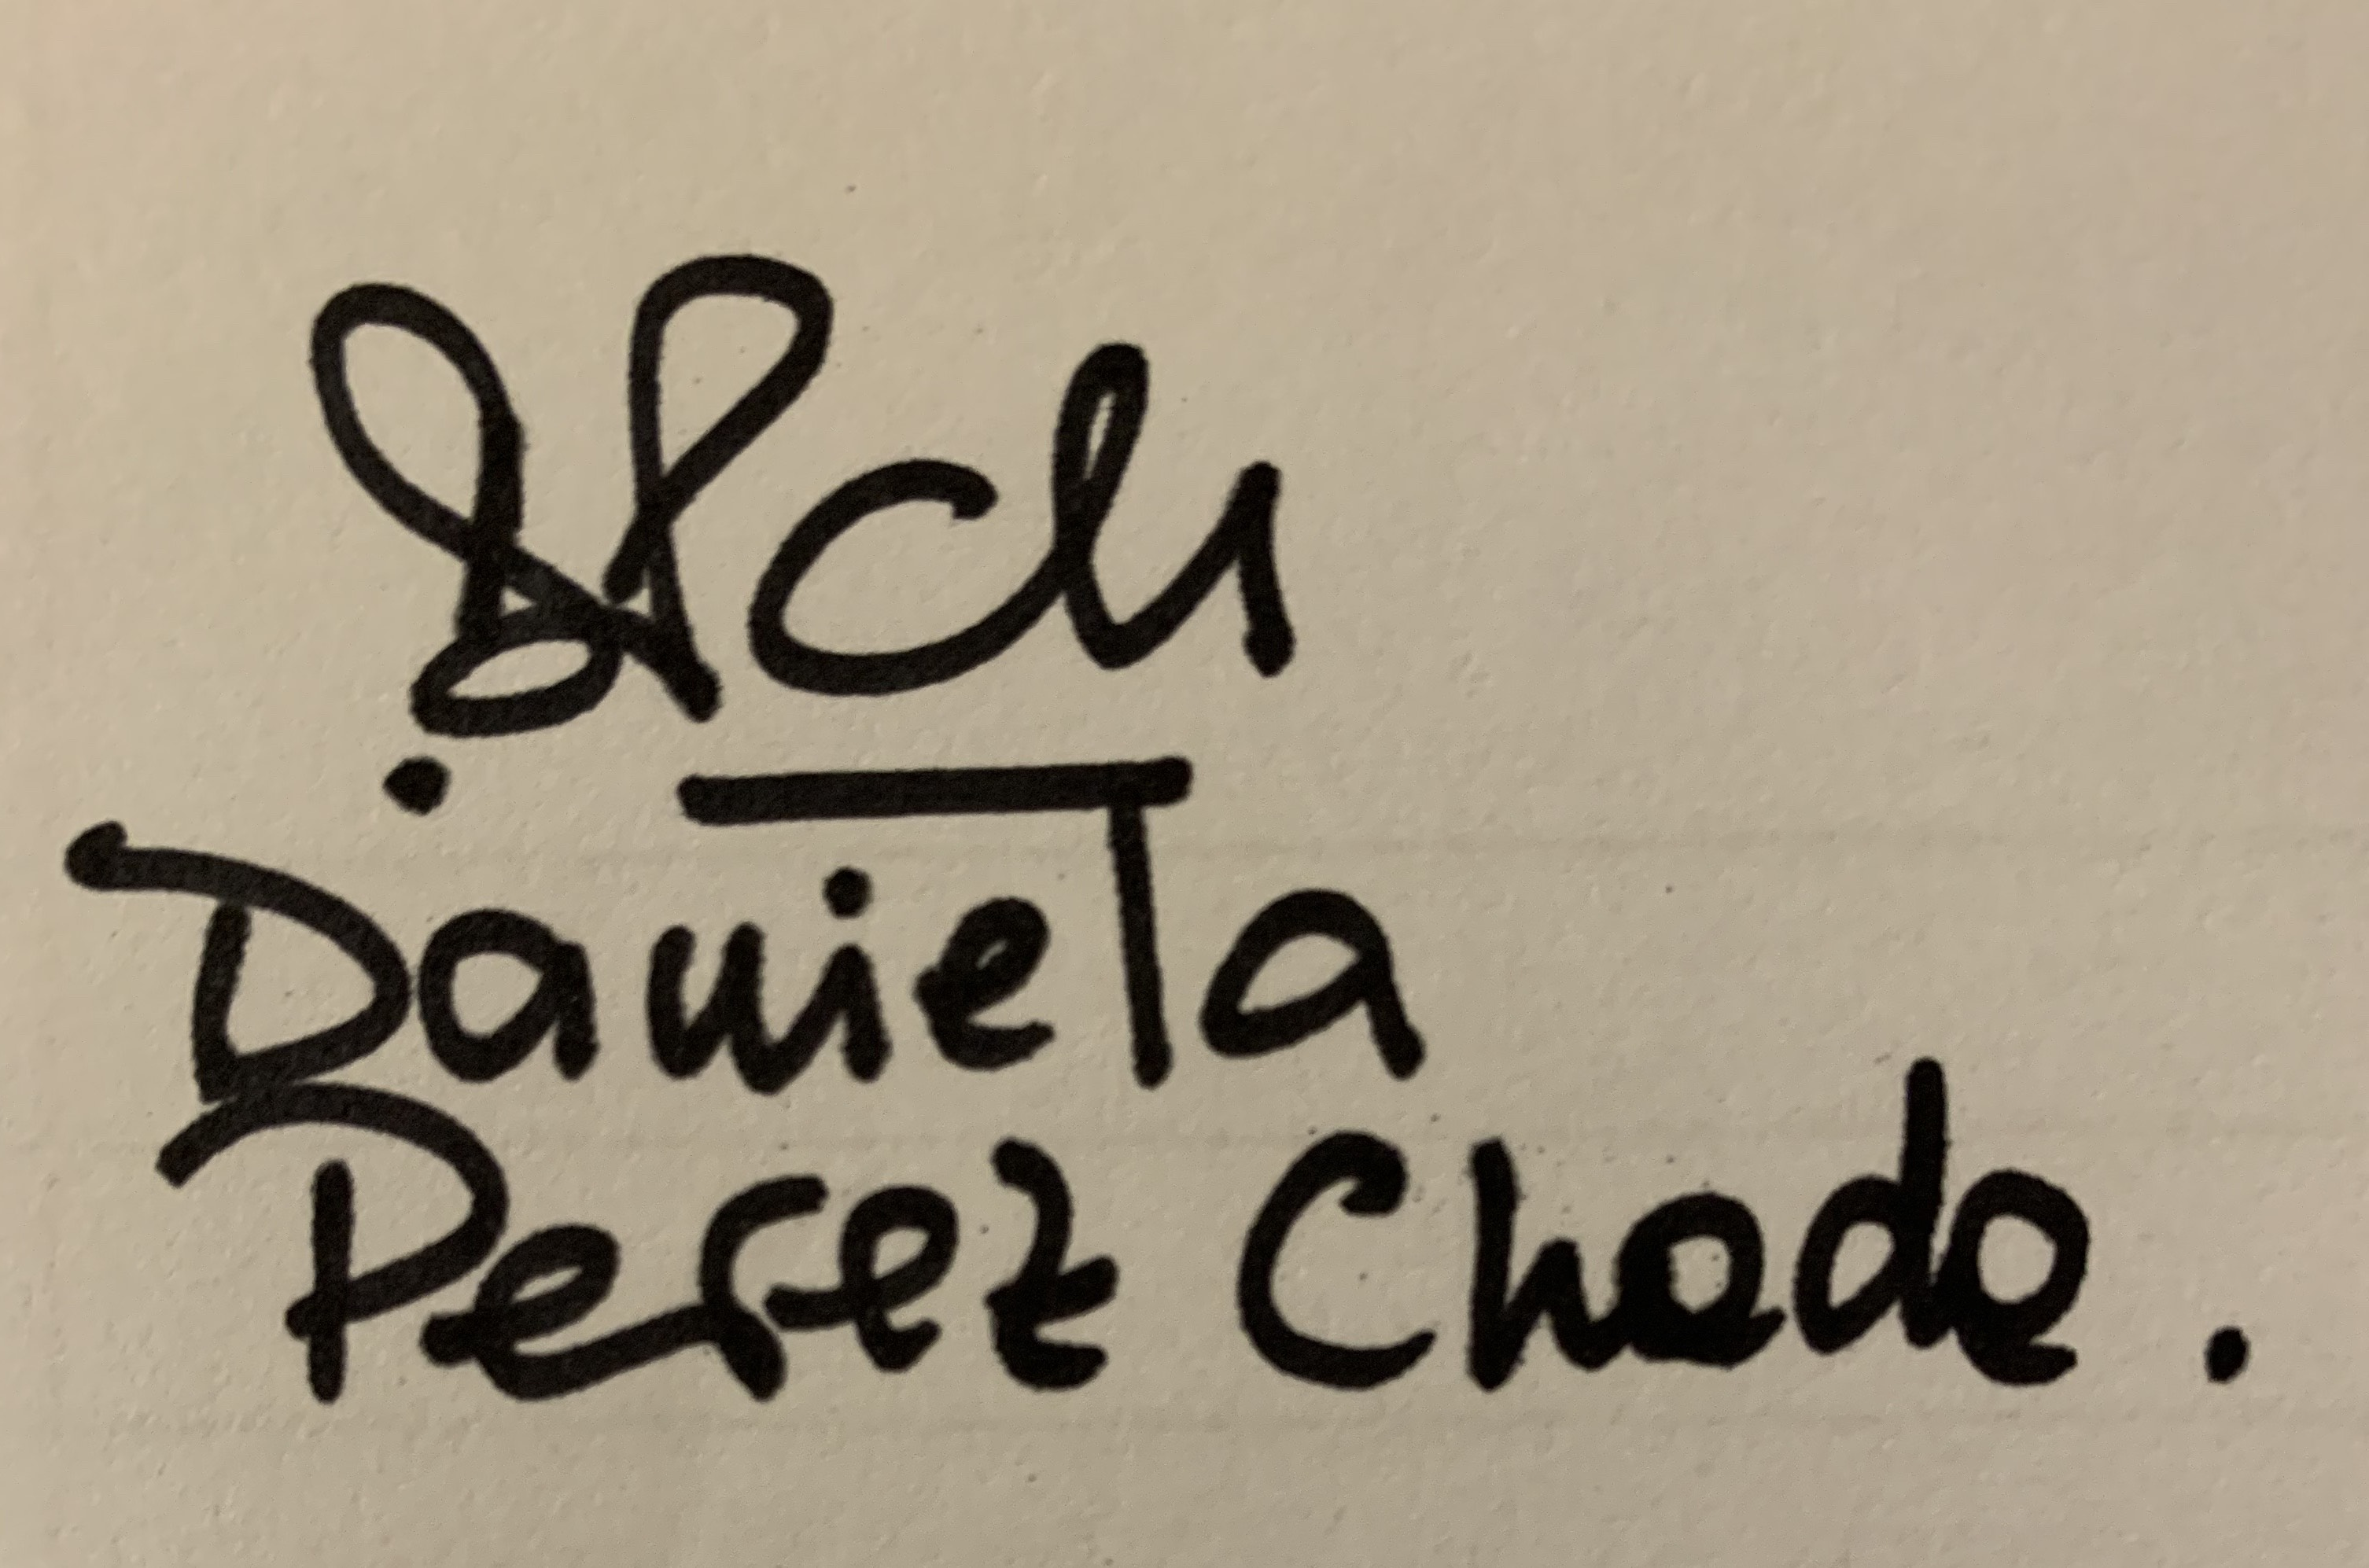 DPch
Daniela
Perez Chada.